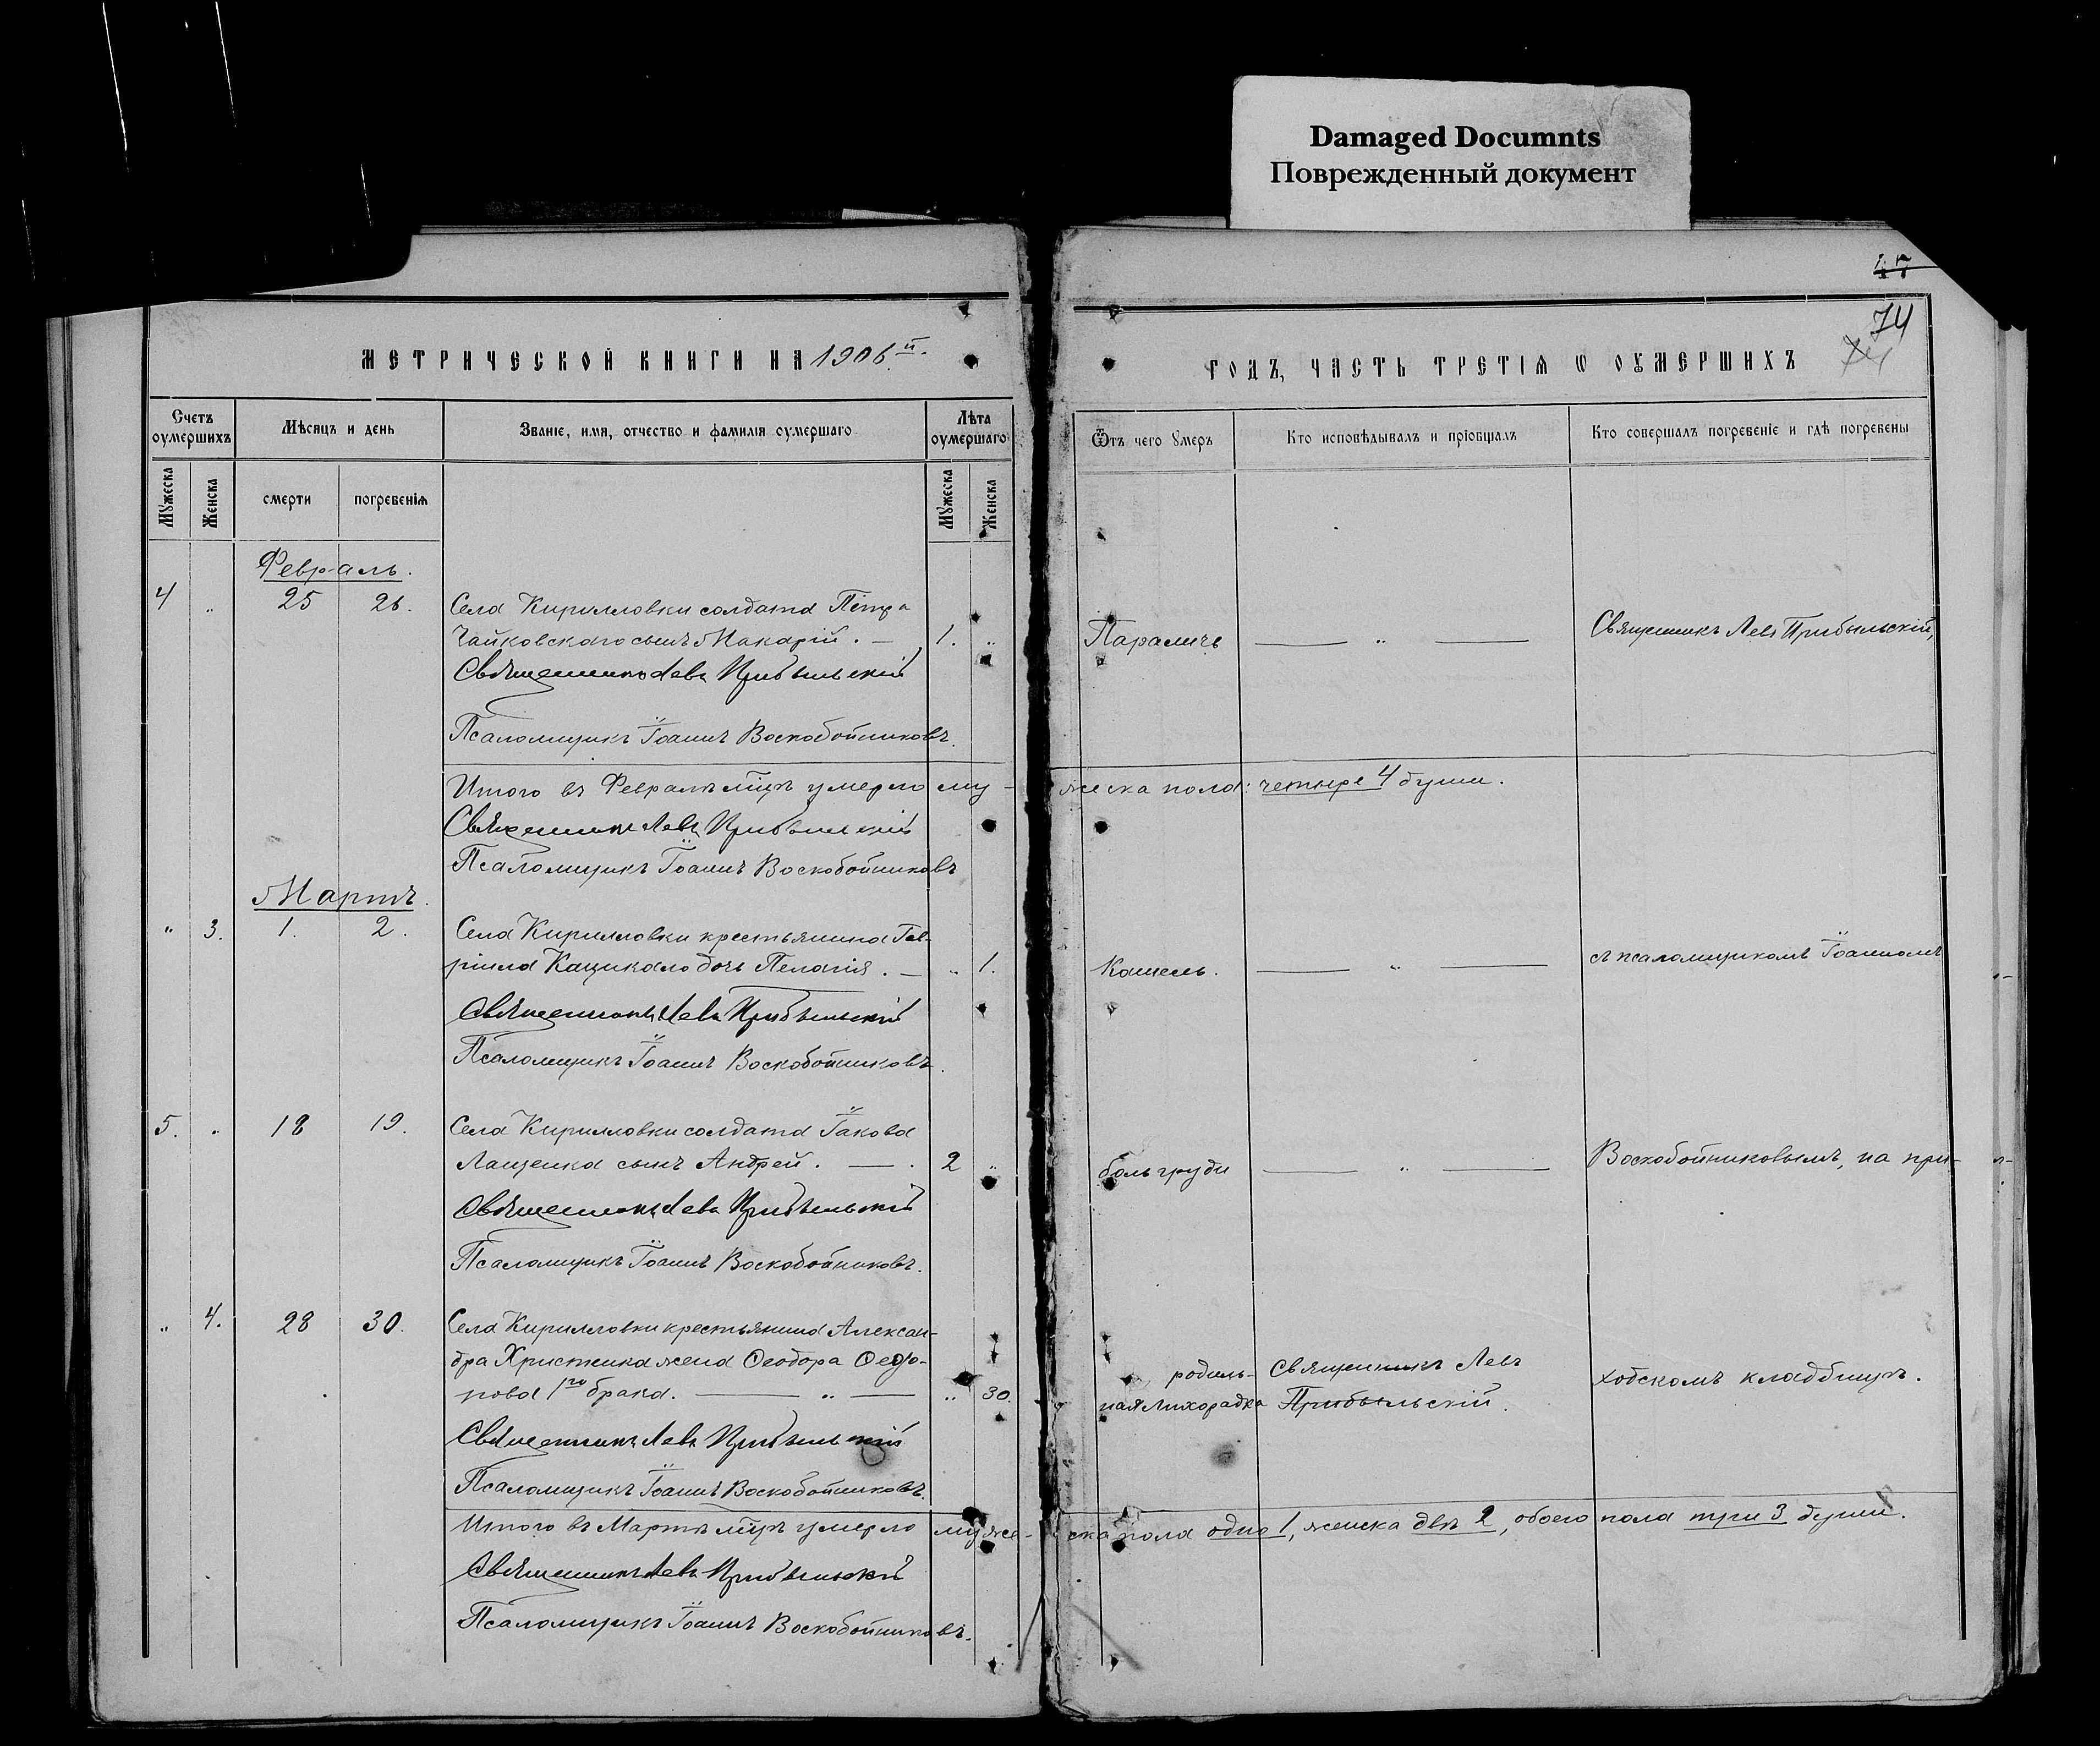 Damaged Documnts
Поврежденный документ
47
74
74
МЕТРИЧЕСКОЙ КНИГИ НА 1906й.
ГОДЪ, ЧАСТЬ ТРЕТІѦ Ѡ ОУМЕРШИХЪ
Счетъ оумершихъ
Мѣсяцъ и день
Званіе, имя, отчество и фамилія оумершаго
Лѣта оумершаго
Ѿтъ чего ᲂумеръ
Кто исповѣдывалъ и пріобщалъ
Кто совершалъ погребеніе и гдѣ погребены
Мꙋжеска
Женска
смерти
погребеніѧ
Мꙋжеска
Женска
Февраль.
4 „ 25 26. Села Кирилловки солдата Петра
Чайковскаго сынъ Макарій. — 1. „ Параличъ — „ — Священникъ Левъ Прибыльскій,
Священникъ Левъ Прибыльскій
Псаломщикъ Іоаннъ Воскобойниковъ.
Итого въ Февралѣ мцѣ умерло му-жеска пола: четыре 4 души.
Священникъ Левъ Прибыльскій
Псаломщикъ Іоаннъ Воскобойниковъ
Мартъ.
„ 3. 1. 2. Села Кирилловки крестьянина Гав-
ріила Кацикало дочь Пелагія. — „ 1. Кашель. — „ — съ псаломщикомъ Іоанномъ
Священникъ Левъ Прибыльскій
Псаломщикъ Іоаннъ Воскобойниковъ.
5. „ 18 19. Села Кирилловки солдата Іакова
Лащенка сынъ Андрей. — . 2 „ боль груди — „ — Воскобойниковымъ, на при-
Священникъ Левъ Прибыльскій
Псаломщикъ Іоаннъ Воскобойниковъ.
„ 4. 28 30. Села Кирилловки крестьянина Алексан-
дра Христенка жена Ѳеодора Ѳедо- родиль- Священникъ Левъ ходскомъ кладбищѣ.
рова 1го брака. — „ — „ 30. ная лихорадка Прибыльскій.
Священникъ Левъ Прибыльскій
Псаломщикъ Іоаннъ Воскобойниковъ.
Итого въ Мартѣ мцѣ умерло муже-ска пола одно 1, женска двѣ 2, обоего пола три 3 души.
Священникъ Левъ Прибыльскій
Псаломщикъ Іоаннъ Воскобойниковъ.